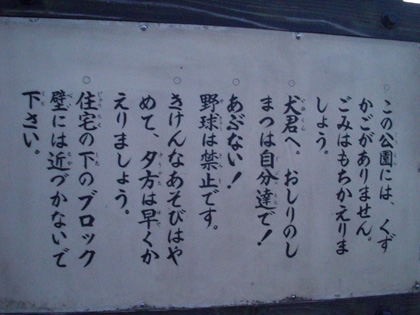 ○この公園には、くず
かごがありません。
ごみはもちかえりま
しょう。
○犬君へ。おしりのし
まつは自分達で!
○あぶない!
野球は禁止です。
○きけんなあそびはや
めて、夕方は早くか
えりましょう。
○住宅の下のブロック
壁には近づかないで
下さい。